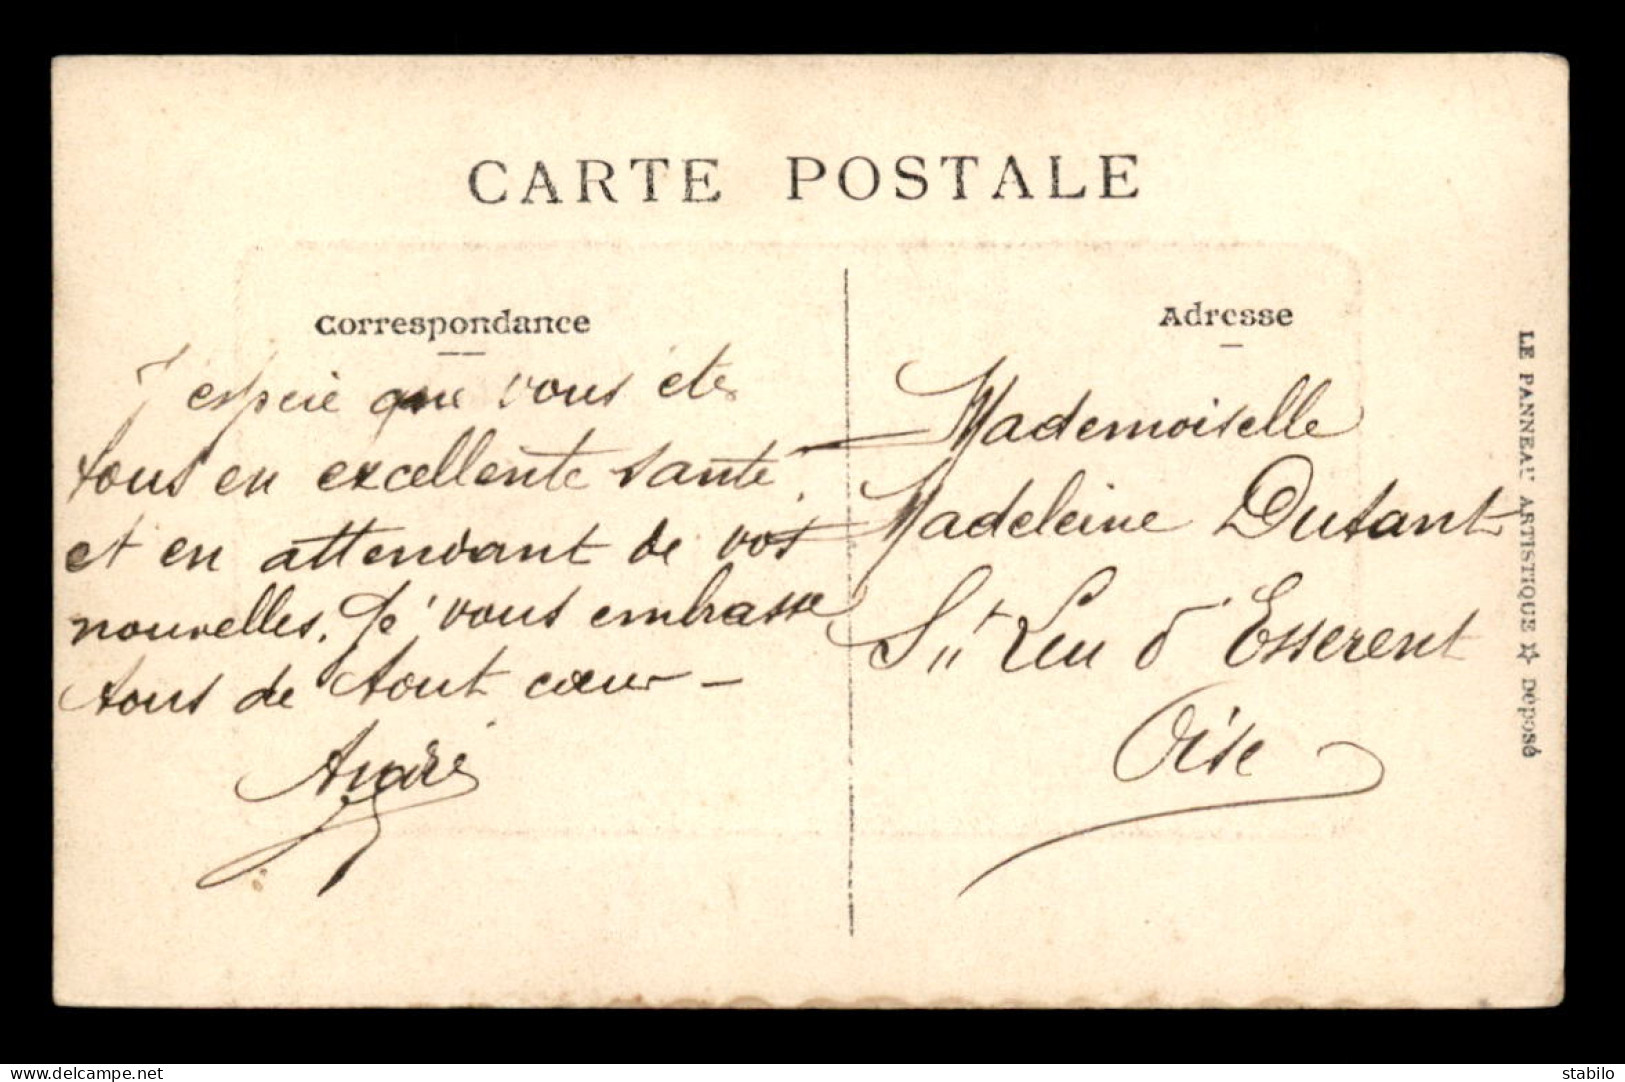 CARTE POSTALE
Correspondance
J'espère que vous êtes
tous en excellente santé
et en attendant de vos
nouvelles. Je vous embrasse
tous de tout cœur —
André
Adresse
Mademoiselle
Madeleine Dutant
St Leu d'Esserent
Oise
LE PANNEAU ARTISTIQUE ☆ Déposé
www.delcampe.net
stabilo